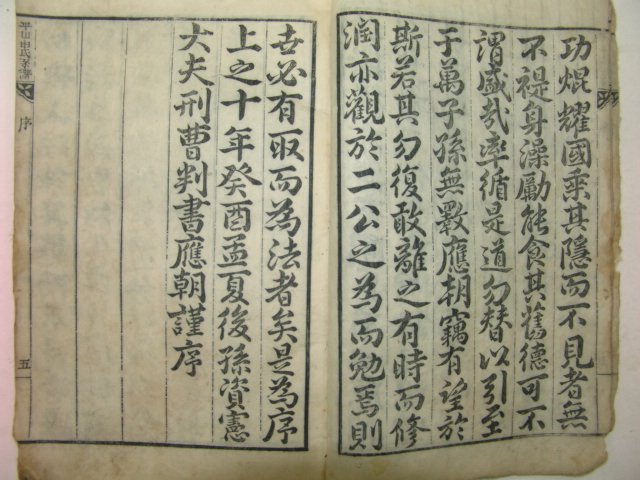 功焜耀國乘其隱而不見者無
不禔身澡勵能食其舊德可不
謂盛㢤率循是道勿替以引至
于萬子孫無斁應朝竊有望於
斯若其勿復敢離之有時而修
潤亦觀於二公之為而勉焉則
卋必有取而為法者矣是為序
上之十年癸酉孟夏後孫資憲
大夫刑曹判書應朝謹序
平山申氏系譜
序
五